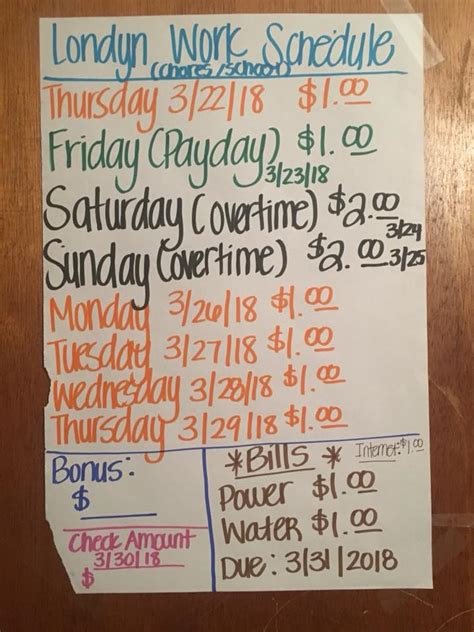 Londyn Work Schedule
(chores/school)
Thursday 3/22/18 $1.00
Friday (Payday) $1.00
3/23/18
Saturday (overtime) $2.00
3/24
Sunday (overtime) $2.00
3/25
Monday 3/26/18 $1.00
Tuesday 3/27/18 $1.00
Wednesday 3/28/18 $1.00
Thursday 3/29/18 $1.00
Bonus:
$
Check Amount
3/30/18
$
Internet: $1.00
*Bills*
Power $1.00
Water $1.00
Due: 3/31/2018